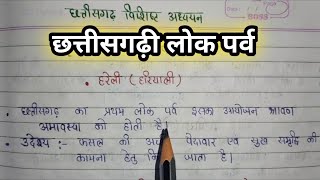 छत्तीसगढ़ विशिष्ट अध्ययन
छत्तीसगढ़ी लोक पर्व
• हरेली (हरियाली)
• छत्तीसगढ़ का प्रथम लोक पर्व इसका आयोजन श्रावण
अमावस्या को होती है।
• उद्देश्य :- फसल की पैदावार एवं सुख समृद्धि की
कामना हेतु जाता है।